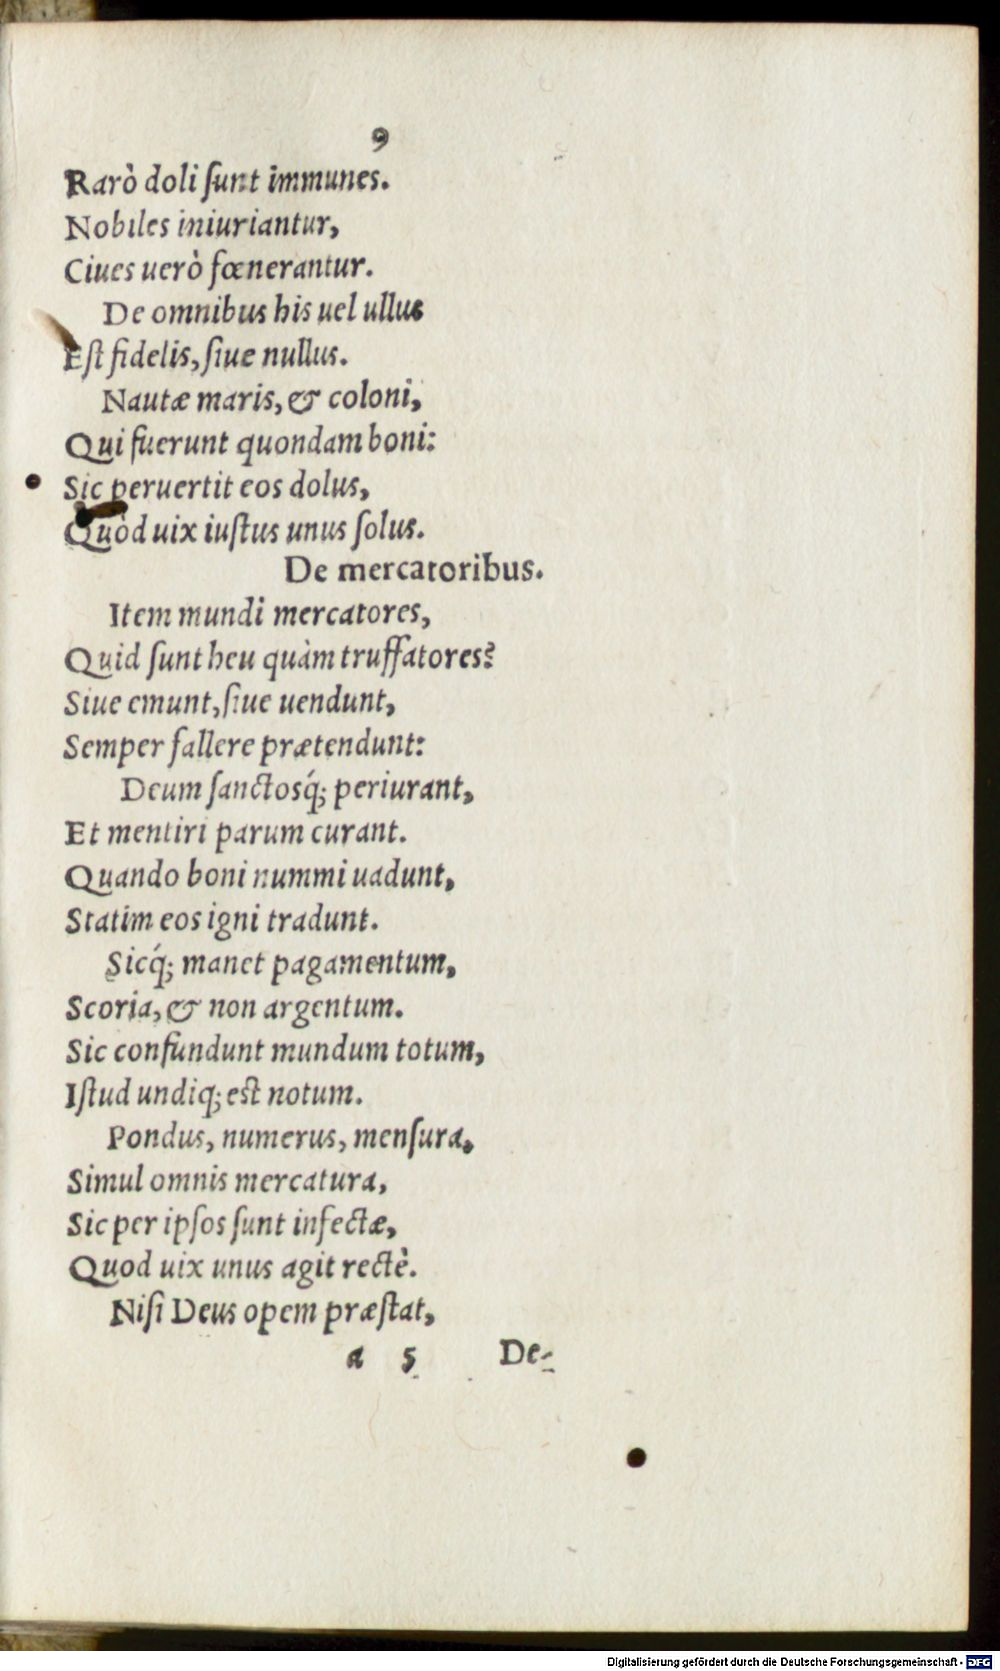 9
Rarò doli ſunt immunes.
Nobiles iniuriantur,
Ciues uerò fœnerantur.
De omnibus his uel ullus
Eſt fidelis, ſiue nullus.
Nautæ maris, & coloni,
Qui fuerunt quondam boni:
Sic peruertit eos dolus,
Quòd uix iuſtus unus ſolus.
De mercatoribus.
Item mundi mercatores,
Quid ſunt heu quàm truffatores?
Siue emunt, ſiue uendunt,
Semper fallere prætendunt:
Deum ſanctosq́; periurant,
Et mentiri parum curant.
Quando boni nummi uadunt,
Statim eos igni tradunt.
Sicq́; manet pagamentum,
Scoria, & non argentum.
Sic confundunt mundum totum,
Iſtud undiq; eſt notum.
Pondus, numerus, menſura,
Simul omnis mercatura,
Sic per ipſos ſunt infectæ,
Quod uix unus agit rectè.
Niſi Deus opem præſtat,
a 5 De-
Digitalisierung gefördert durch die Deutsche Forschungsgemeinschaft - DFG